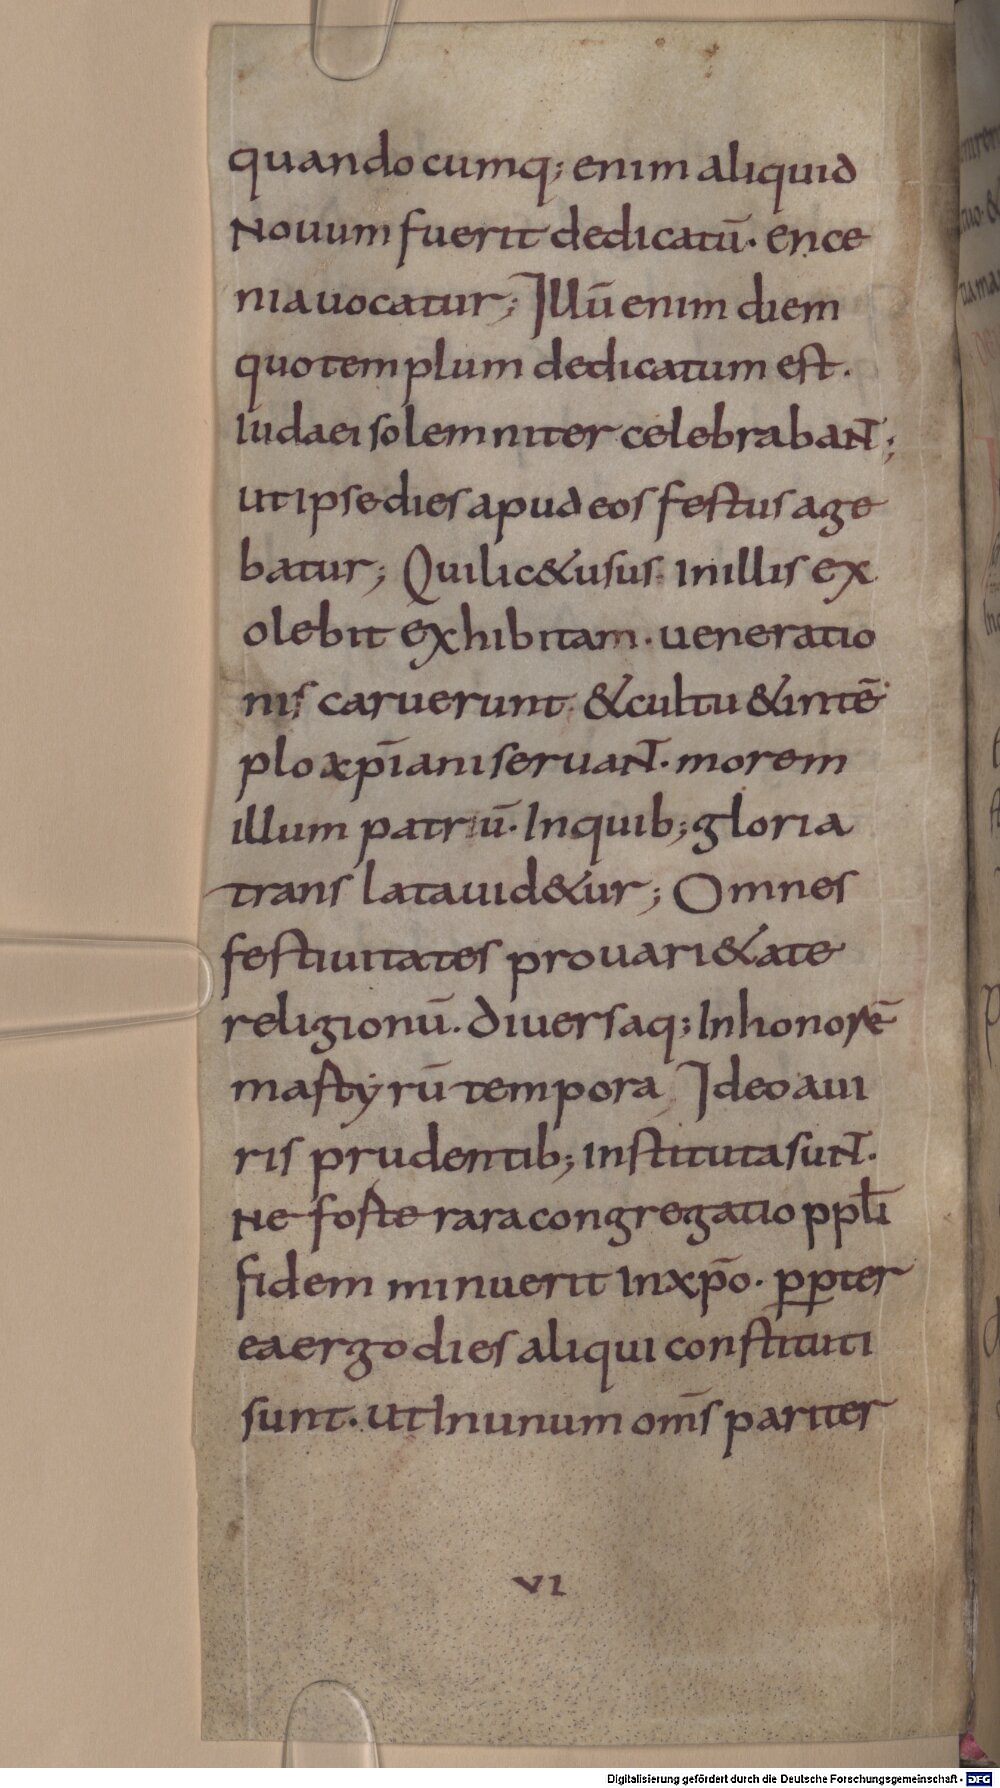 quandocumq; enim aliquid
Nouum fuerit dedicatū. ence
niauocatur; Illū enim diem
quotemplum dedicatum est.
Iudaei solemniter celebrabaNT;
ut ipsedies apud eos festus age
batur; Quilic&usus inillis ex
olebit exhibitam. ueneratio
nis caruerunt &cultu &intē
plo xp̄iani seruaNT. morem
illum patriū. Inquib; gloria
trans lata uid&ur; Omnes
festiuitates prouari&ate
religionū. diuersaq; Inhonorē
mastyrū tempora Ideo aui
ris prudentib; instituta suNT.
Ne foste rara congregatio ppłi
fidem minuerit inxp̄o. ꝓpter
ea ergo dies aliqui constituti
sunt. ut Inunum om̄s pariter
VI
Digitalisierung gefördert durch die Deutsche Forschungsgemeinschaft - DFG